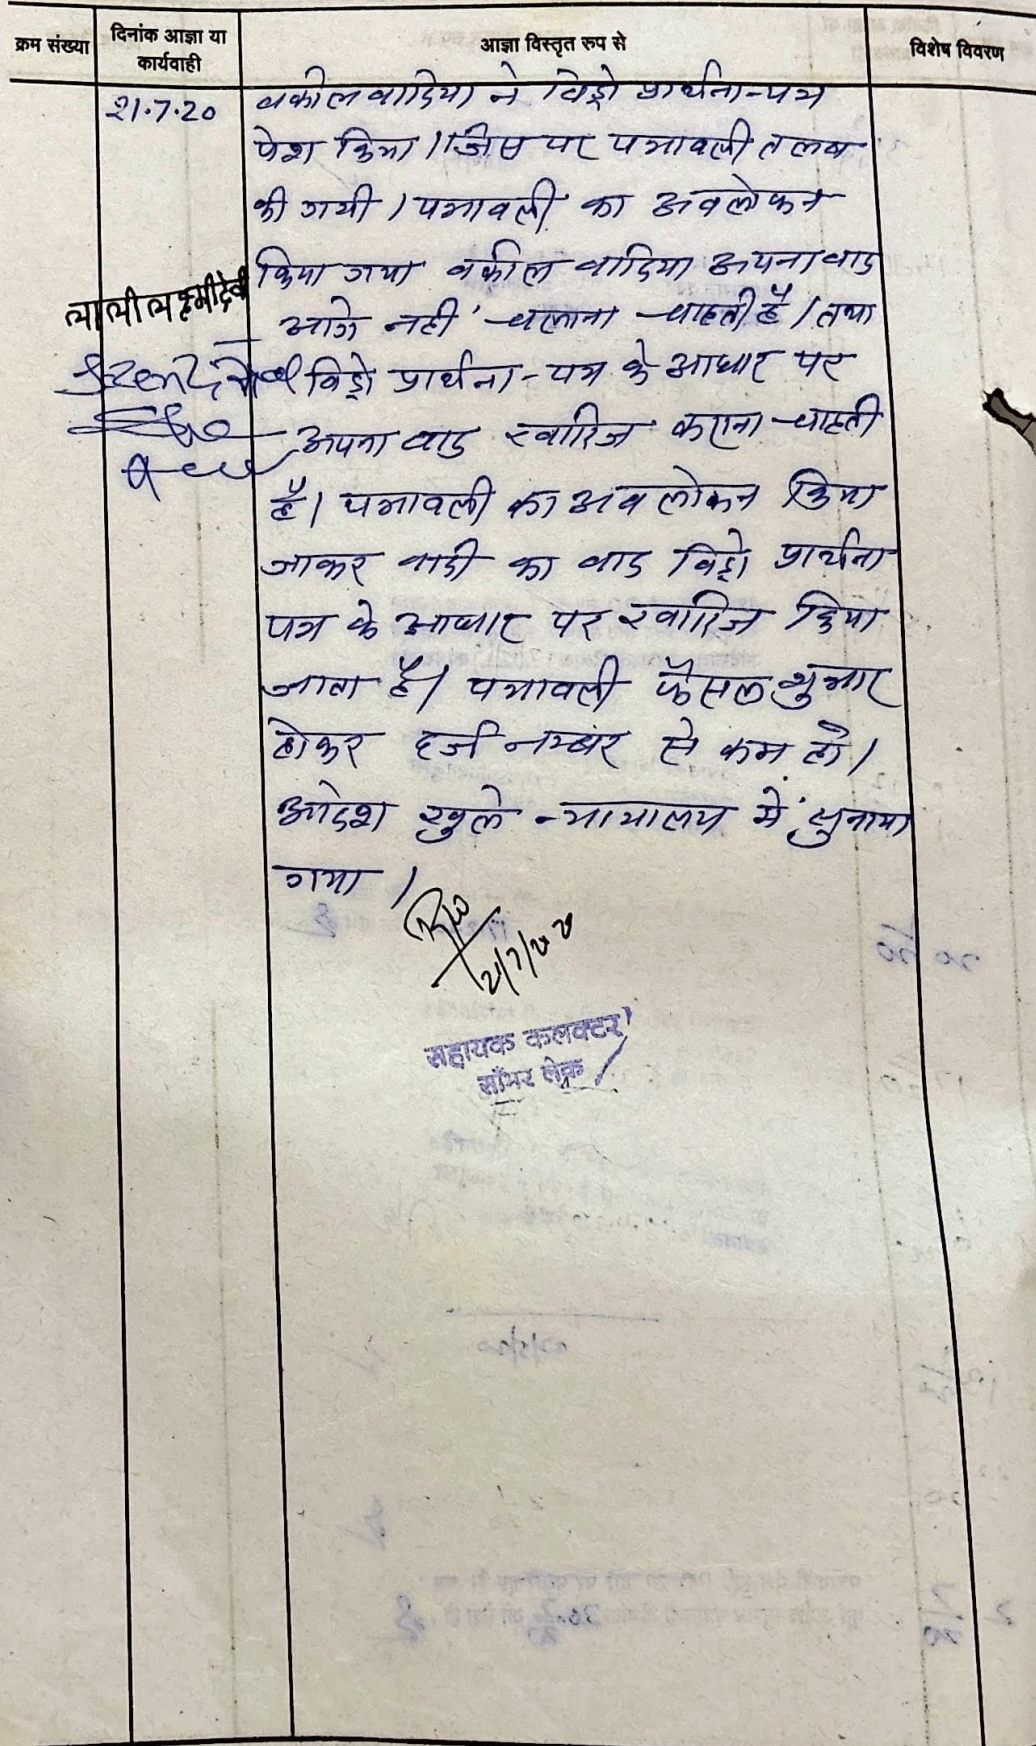 क्रम संख्या
दिनांक आज्ञा या
कार्यवाही
आज्ञा विस्तृत रुप से
विशेष विवरण
21.7.20
वकील वादिया ने विड्रो प्रार्थना-पत्र
पेश किया। जिस पर पत्रावली तलब
की गयी। पत्रावली का अवलोकन
किया गया वकील वादिया अपना वाद
आगे नहीं चलाना चाहती है। तथा
विड्रो प्रार्थना-पत्र के आधार पर
अपना वाद खारिज कराना चाहती
है। पत्रावली का अवलोकन किया
जाकर वादी का वाद विड्रो प्रार्थना
पत्र के आधार पर खारिज किया
जाता है। पत्रावली फैसल शुमार
होकर दर्ज नम्बर से कम हो।
आदेश खुले न्यायालय में सुनाया
गया।
लक्ष्मीदेवी
21/7/20
सहायक कलक्टर
साँभर लेक